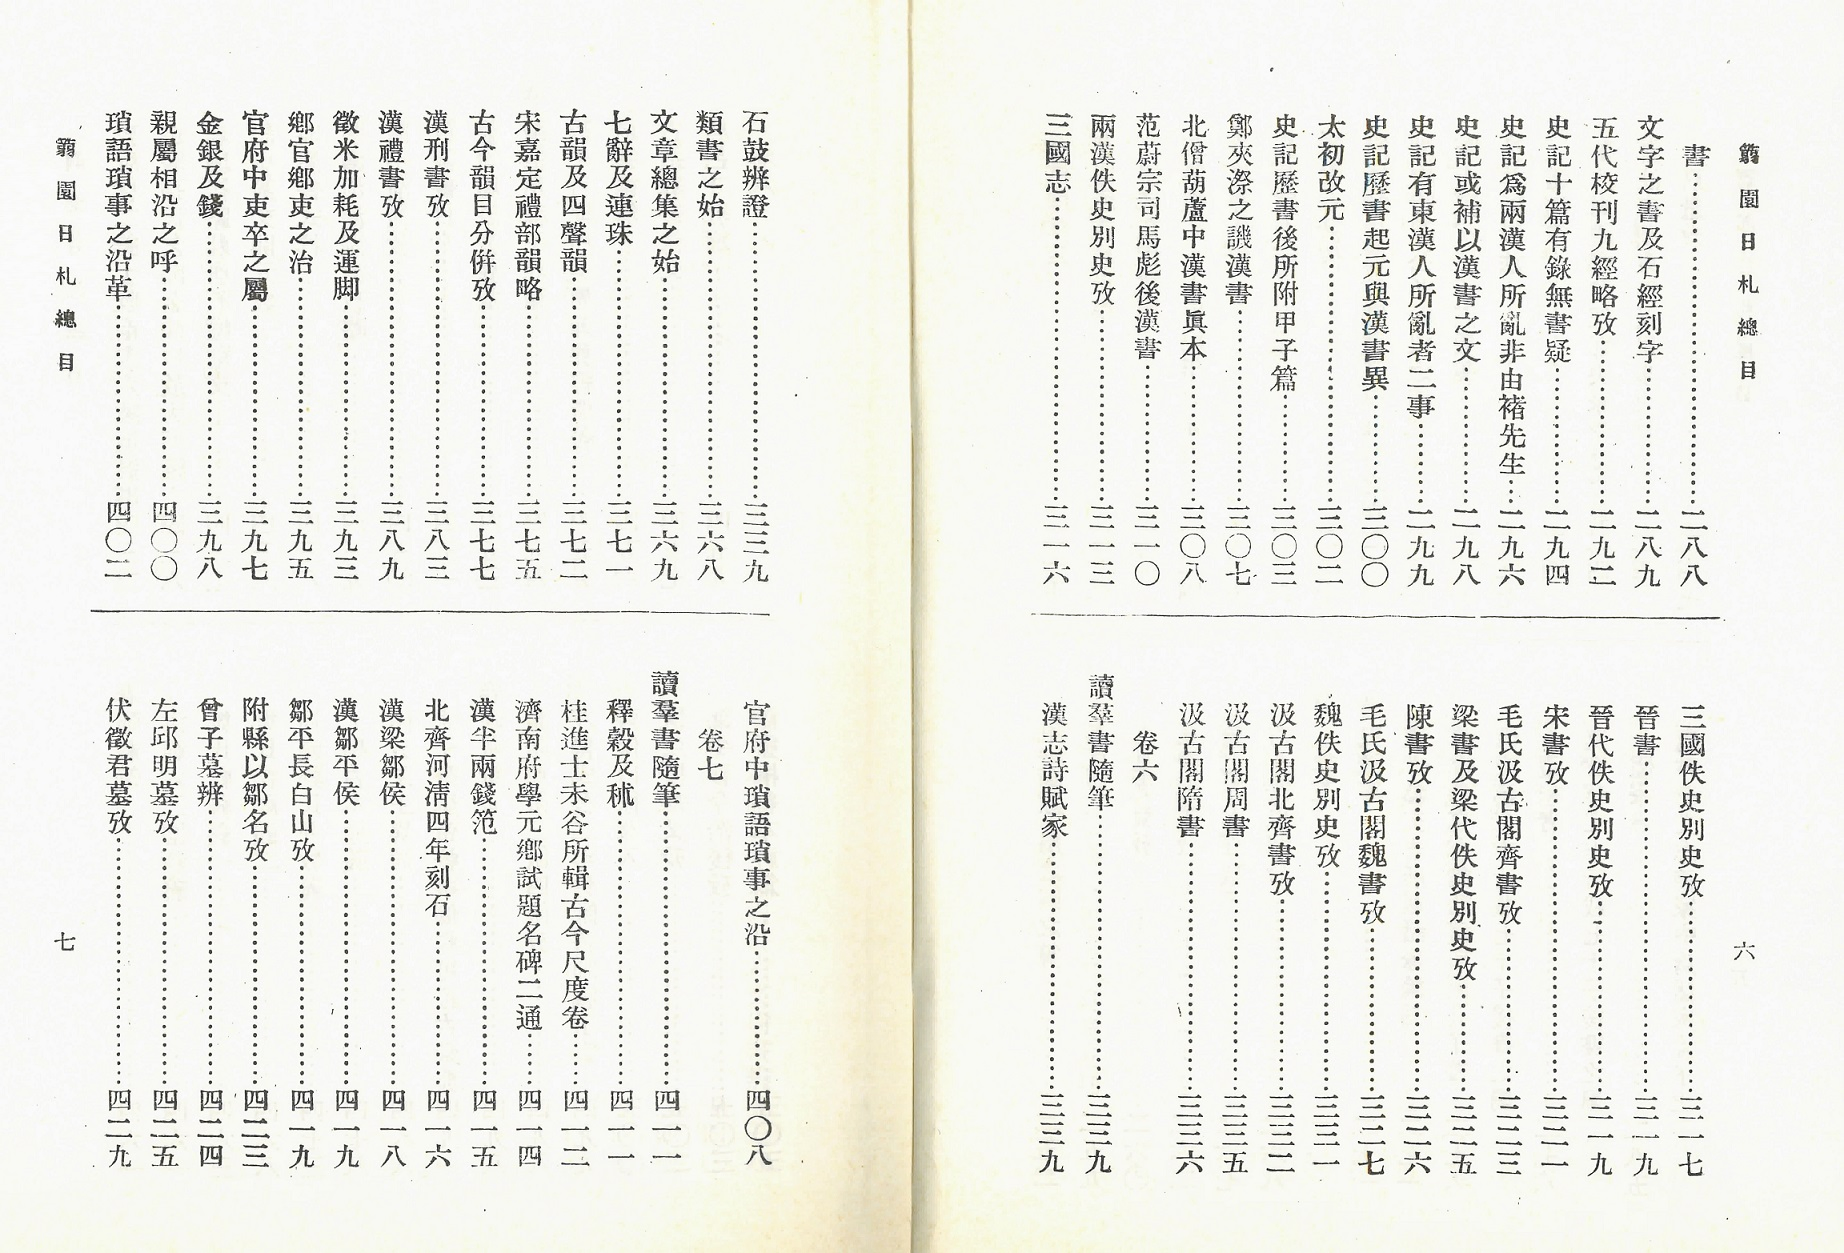 蒻園日札總目
六
書……二八八
文字之書及石經刻字……二八九
五代校刊九經略攷……二九二
史記十篇有錄無書疑……二九四
史記爲兩漢人所亂非由褚先生……二九六
史記或補以漢書之文……二九八
史記有東漢人所亂者二事……二九九
史記歷書起元與漢書異……三〇〇
太初改元……三〇二
史記歷書後所附甲子篇……三〇三
鄭夾漈之譏漢書……三〇七
北僧葫蘆中漢書眞本……三〇八
范蔚宗司馬彪後漢書……三一〇
兩漢佚史別史攷……三一三
三國志……三一六
三國佚史別史攷……三一七
晉書……三一九
晉代佚史別史攷……三一九
宋書攷……三二一
毛氏汲古閣齊書攷……三二三
梁書及梁代佚史別史攷……三二五
陳書攷……三二六
毛氏汲古閣魏書攷……三二七
魏佚史別史攷……三三一
汲古閣北齊書攷……三三二
汲古閣周書……三三五
汲古閣隋書……三三六
卷六
讀羣書隨筆……三三九
漢志詩賦家……三三九
石鼓辨證……三三九
類書之始……三六八
文章總集之始……三六九
七辭及連珠……三七一
古韻及四聲韻……三七二
宋嘉定禮部韻略……三七五
古今韻目分併攷……三七七
漢刑書攷……三八三
漢禮書攷……三八九
徵米加耗及運脚……三九三
鄉官鄉吏之治……三九五
官府中吏卒之屬……三九七
金銀及錢……三九八
親屬相沿之呼……四〇〇
瑣語瑣事之沿革……四〇二
官府中瑣語瑣事之沿……四〇八
卷七
讀羣書隨筆……四一一
釋穀及秫……四一一
桂進士未谷所輯古今尺度卷……四一二
濟南府學元鄉試題名碑二通……四一四
漢半兩錢笵……四一五
北齊河淸四年刻石……四一六
漢梁鄒侯……四一八
漢鄒平侯……四一九
鄒平長白山攷……四一九
附縣以鄒名攷……四二三
曾子墓辨……四二四
左邱明墓攷……四二五
伏徵君墓攷……四二九
蒻園日札總目
七